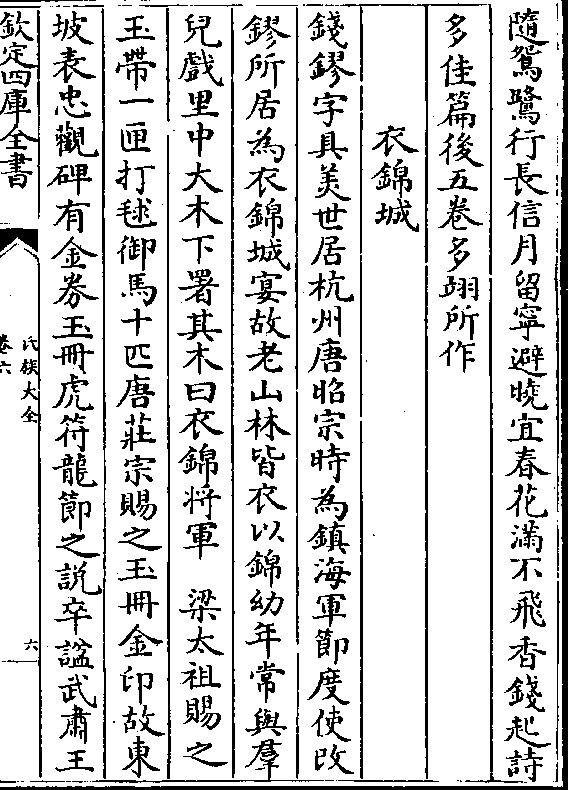 隨鴛鷺行長信月留寧避曉宜春花滿不飛香錢起詩
多佳篇後五卷多翊所作
衣錦城
錢鏐字具美世居杭州唐昭宗時為鎮海軍節度使改
鏐所居為衣錦城宴故老山林皆衣以錦幼年常與羣
兒戲里中大木下署其木曰衣錦將軍　梁太祖賜之
玉帶一匣打毬御馬十匹唐莊宗賜之玉冊金印故東
坡表忠觀碑有金券玉冊虎符龍節之説卒諡武肅王
欽定四庫全書
氏族大全
卷六
六